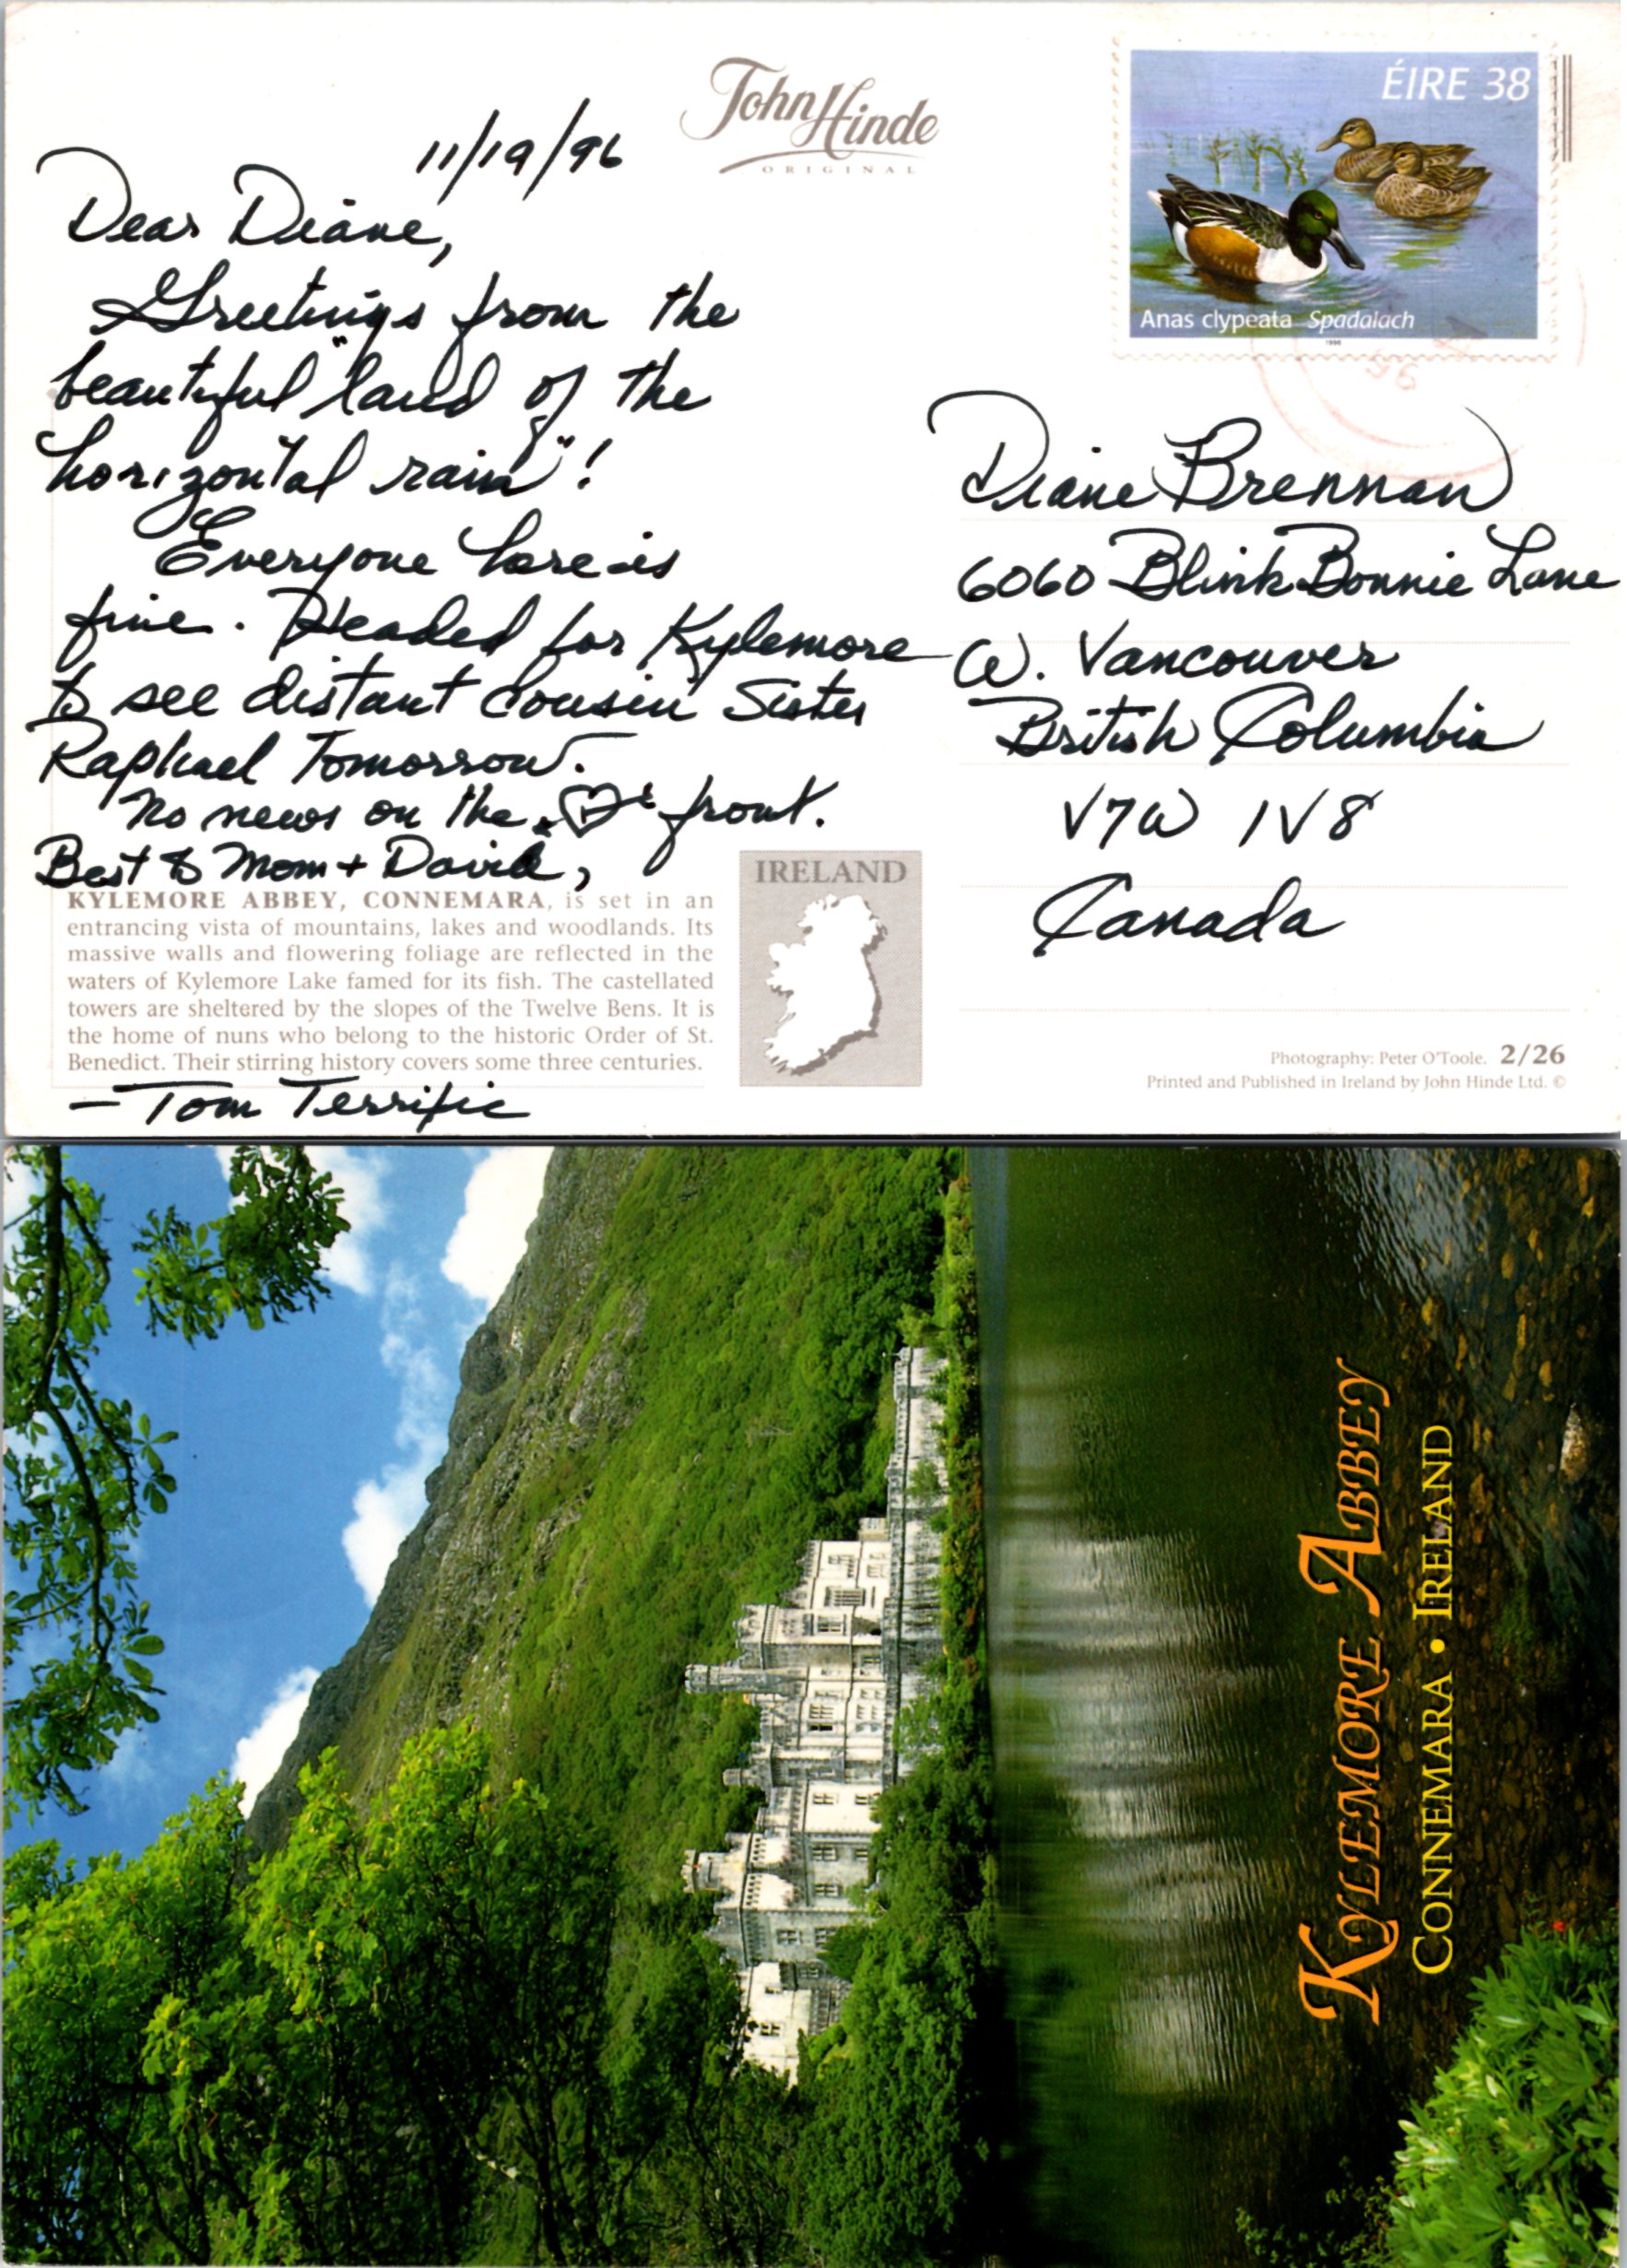 John Hinde
ORIGINAL
ÉIRE 38
Anas clypeata Spadalach
1996
96
11/19/96
Dear Diane,
Greetings from the
beautiful "land of the
horizontal rain"!
Everyone here is
fine. Headed for Kylemore
to see distant cousin Sister
Raphael Tomorrow.
No news on the front.
Best to Mom + David,
Diane Brennan
6060 Blink Bonnie Lane
W. Vancouver
British Columbia
V7W 1V8
Canada
KYLEMORE ABBEY, CONNEMARA, is set in an
entrancing vista of mountains, lakes and woodlands. Its
massive walls and flowering foliage are reflected in the
waters of Kylemore Lake famed for its fish. The castellated
towers are sheltered by the slopes of the Twelve Bens. It is
the home of nuns who belong to the historic Order of St.
Benedict. Their stirring history covers some three centuries.
IRELAND
Photography: Peter O'Toole. 2/26
Printed and Published in Ireland by John Hinde Ltd. ©
– Tom Terrific
KYLEMORE ABBEY
CONNEMARA • IRELAND